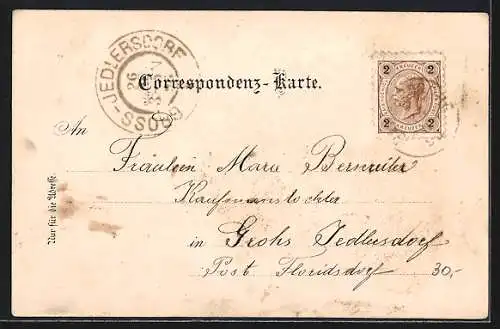 GROSS-JEDLERSDORF
26
Correspondenz-Karte.
2 2
2 2
An
Fräulein Marie
Kaufmannstochter
in Grohs Jedlersdorf
Post Floridsdorf 30,-
Nur für die Adresse.